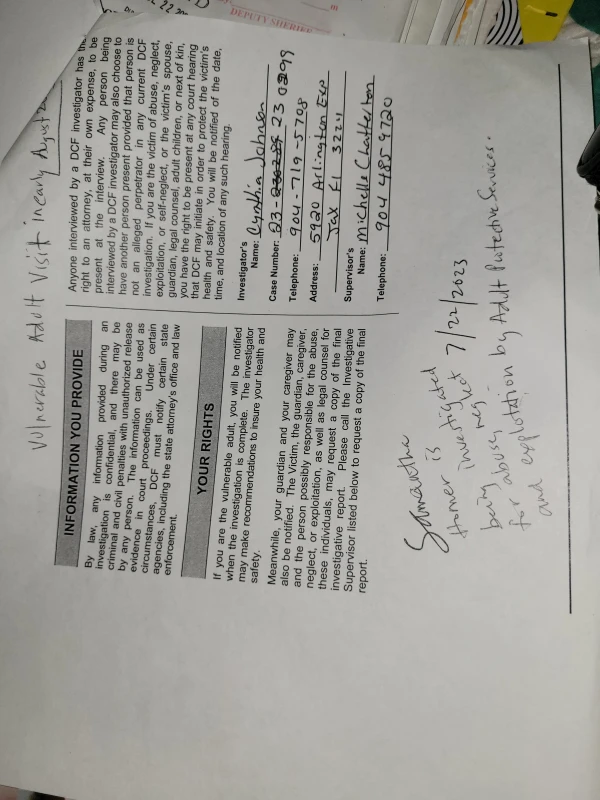 DEPUTY SHERIFF
Vulnerable Adult Visit in early August
INFORMATION YOU PROVIDE
By law, any information provided during an
investigation is confidential, and there may be
criminal and civil penalties with unauthorized release
by any person. The information can be used as
evidence in court proceedings. Under certain
circumstances, DCF must notify certain state
agencies, including the state attorney's office and law
enforcement.
YOUR RIGHTS
If you are the vulnerable adult, you will be notified
when the investigation is complete. The investigator
may make recommendations to insure your health and
safety.
Meanwhile, your guardian and your caregiver may
also be notified. The Victim, the guardian, caregiver,
and the person possibly responsible for the abuse,
neglect, or exploitation, as well as legal counsel for
these individuals, may request a copy of the final
investigative report. Please call the Investigative
Supervisor listed below to request a copy of the final
report.
Anyone interviewed by a DCF investigator has the
right to an attorney, at their own expense, to be
present at the interview. Any person being
interviewed by a DCF investigator may also choose to
have another person present provided that person is
not an alleged perpetrator in any current DCF
investigation. If you are the victim of abuse, neglect,
exploitation, or self-neglect, or the victim's spouse,
guardian, legal counsel, adult children, or next of kin,
you have the right to be present at any court hearing
that DCF may initiate in order to protect the victim's
health and safety. You will be notified of the date,
time, and location of any such hearing.
Investigator's
Name: Cynthia Johnson
Case Number: 23-
Telephone: 904-719-5708
Address: 5920 Arlington Exp
Jax Fl 3221
Supervisor's
Name: Michelle Chatterton
Telephone: 904 485-9720
Samantha
Homer is
being investigated
abuse, neg- lect 7/22/2023
for
and explotation by Adult Protective Services.